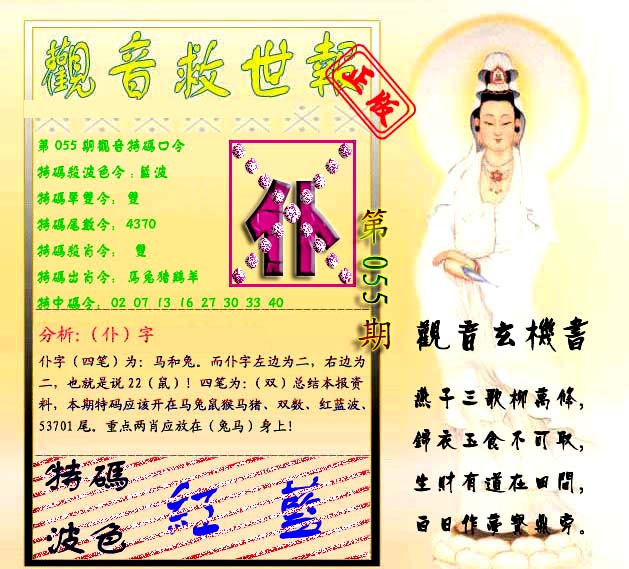 觀音救世報
正版
第055期觀音特碼口令
特碼殺波色令:藍波
特碼單雙令: 雙
特碼尾數令: 4370
特碼殺肖令: 雙
特碼出肖令: 馬兔猪鷄羊
特中碼令: 02 07 13 16 27 30 33 40
仆
第055期
分析:(仆)字
仆字(四笔)为:马和兔。而仆字左边为二,右边为
二,也就是说22(鼠)!四笔为:(双)总结本报资
料,本期特码应该开在马兔鼠猴马猪、双数、红蓝波、
53701尾。重点两肖应放在(兔马)身上!
特碼
波色
紅 藍
觀音玄機書
燕子三歌柳萬條,
錦衣玉食不可取,
生財有道在田間,
百日作夢繁鼎旁。